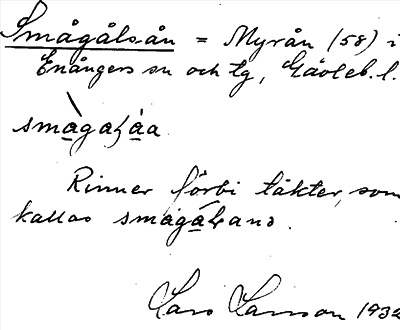 Smågålsån = Myrån (58) i
Enångers sn och tg, Gävleb. l.
Rinner förbi täkter, som
kallas
Lars Larsson 1932